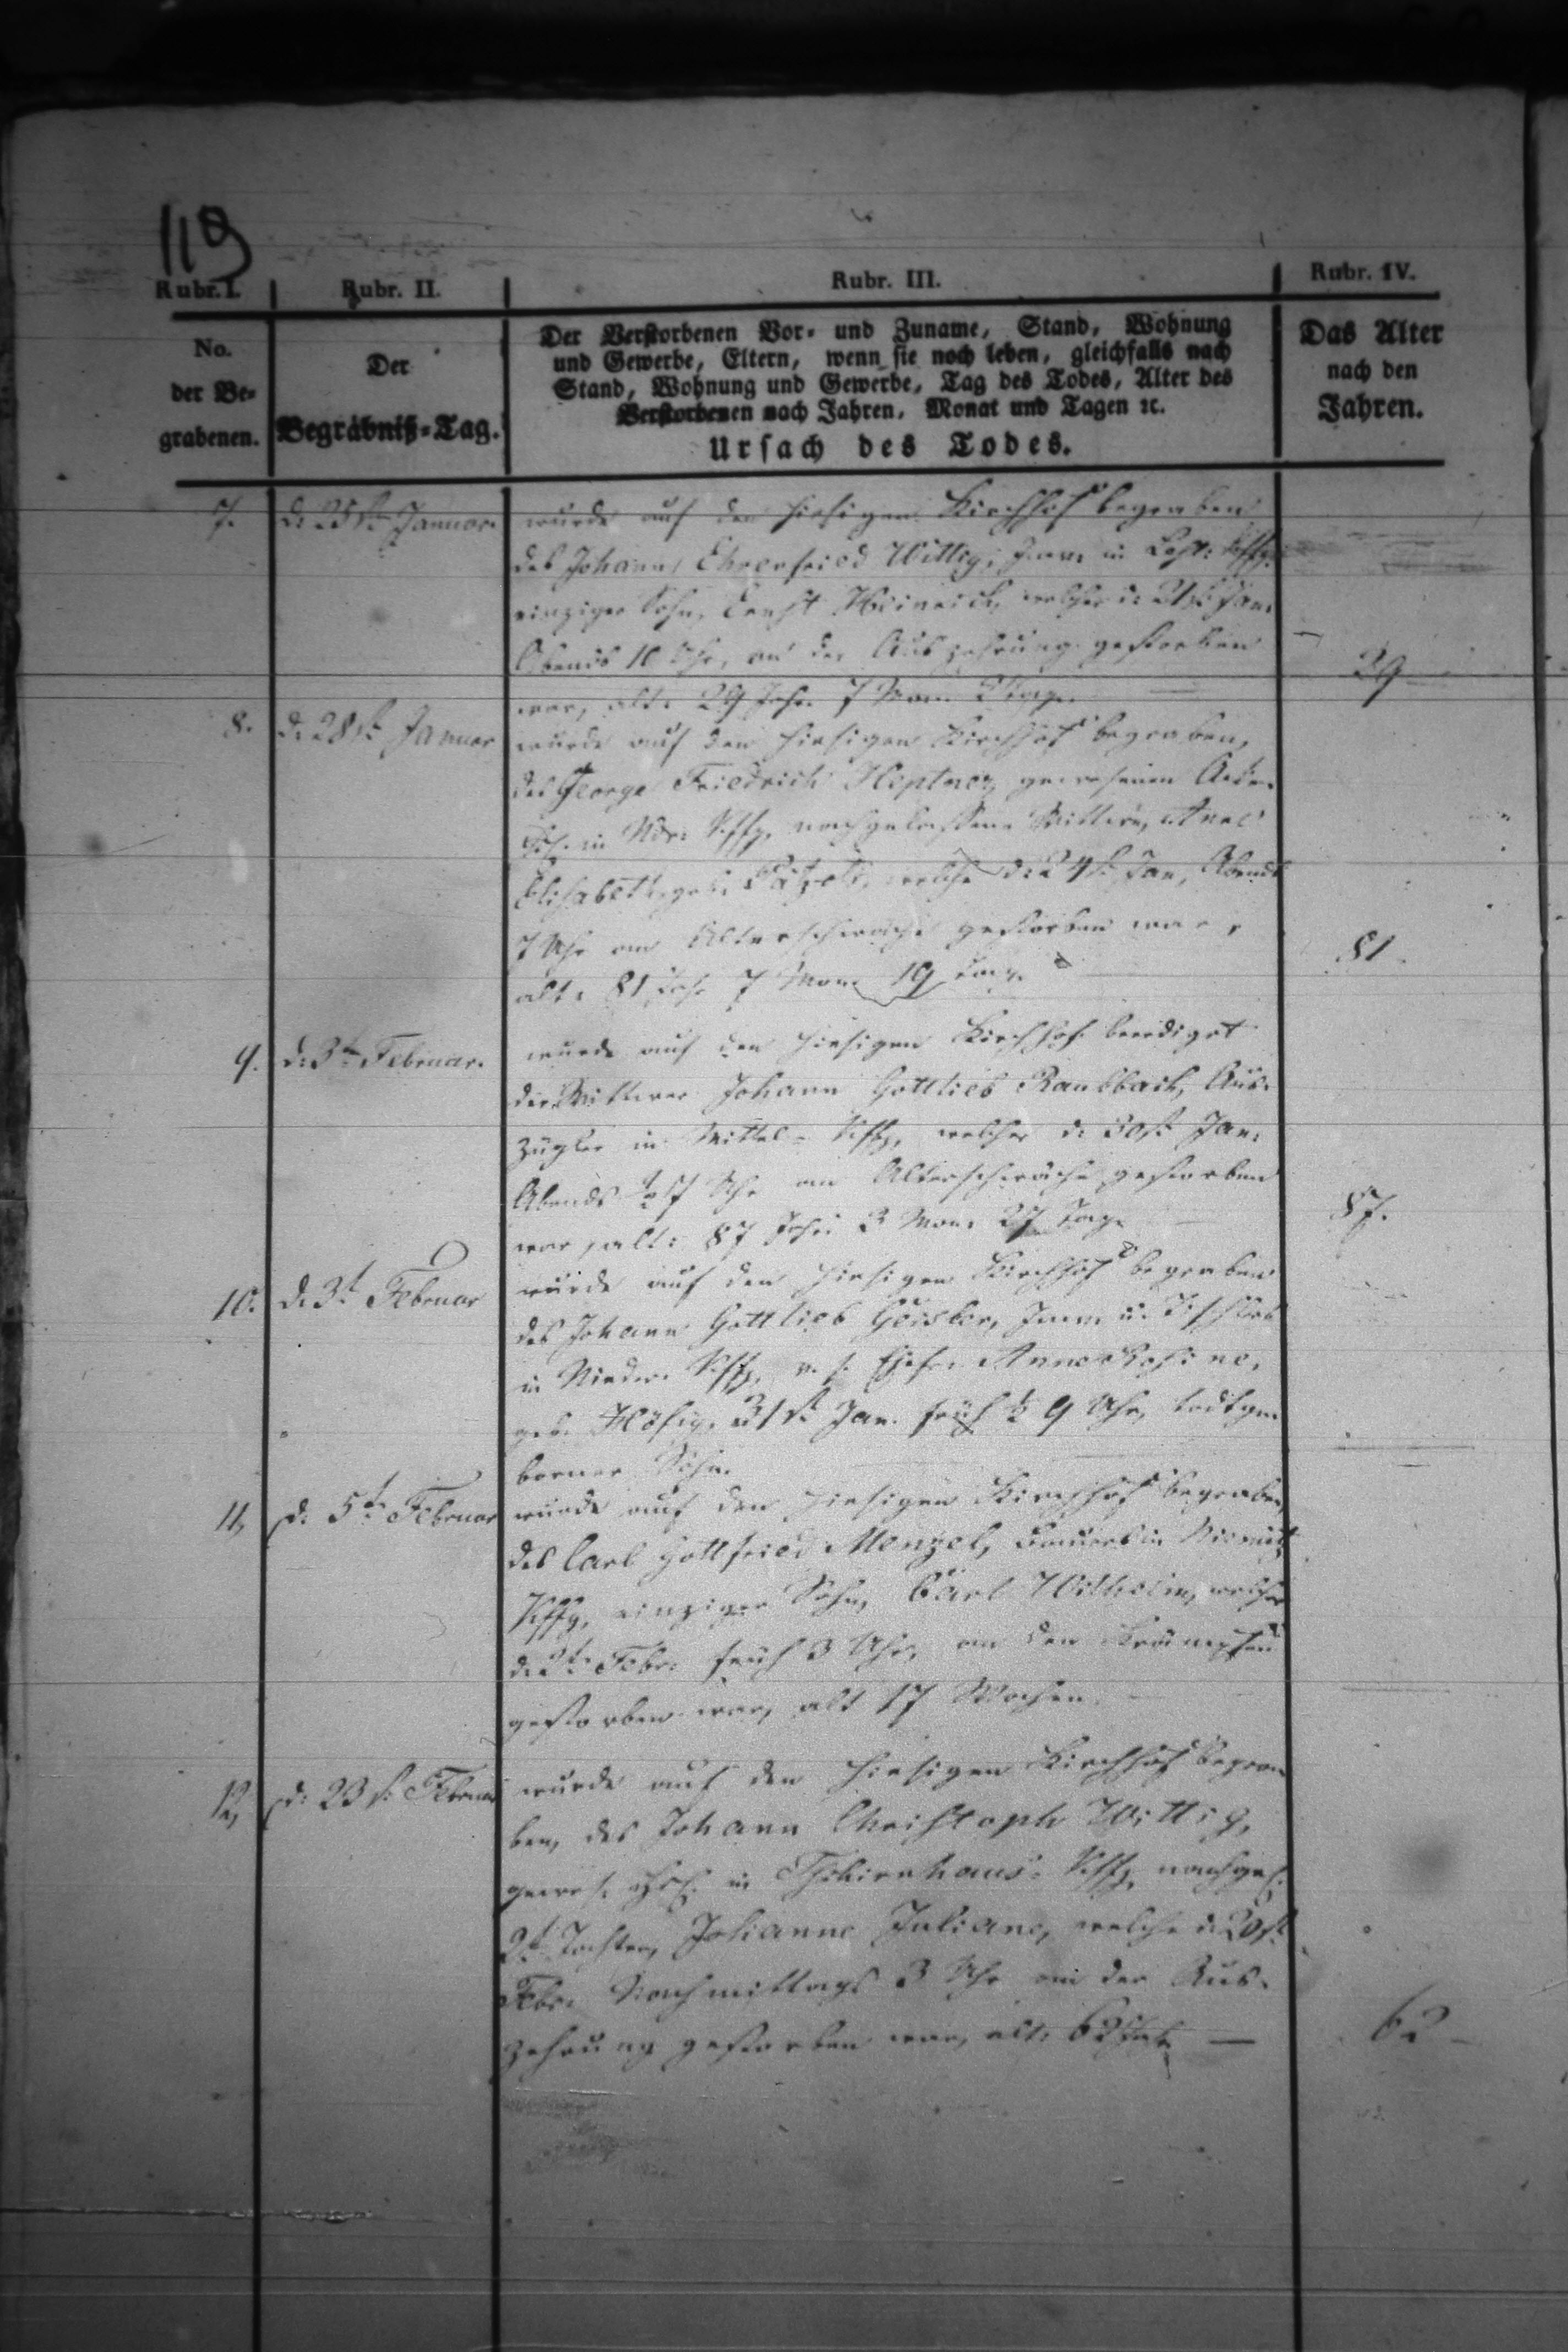 119
Rubr. I. Rubr. II. Rubr. III. Rubr. IV.
No. der Be-grabenen.
Der Begräbniß-Tag.
Der Verstorbenen Vor- und Zuname, Stand, Wohnung
und Gewerbe, Eltern, wenn sie noch leben, gleichfalls nach
Stand, Wohnung und Gewerbe, Tag des Todes, Alter des
Verstorbenen nach Jahren, Monat und Tagen ꝛc.
Ursach des Todes.
Das Alter
nach den
Jahren.
7. d. 25st. Januar. wurde auf den hiesigen Kirchhof begraben
des Johann Ehrenfried Wittig, Inw. in
einziger Sohn, Ernst Heinrich, welcher d. 21st. Jan.
Abends 10 Uhr, an der Auszehrung gestorben 29
war, alt: 29 Jahr 7 Mon. Tage.
8. d. 28st. Januar wurde auf den hiesigen Kirchhof begraben,
des George Friedrich Heptner, gewesenen
in Ndr. Kffg. nachgelassene Wittwe, Anne
Elisabeth, geb. welche d. 24st. Jan. Abends
7 Uhr an Altersschwäche gestorben war, 81.
alt: 81 Jahr 7 Mon. 19 Tage
9. d. 3t. Februar. wurde auf den hiesigen Kirchhof beerdiget
der Wittwer Johann Gottlieb Raubbach, Aus-
zügler in Mittel-Kffg, welcher d. 30st. Jan.
Abends ½ 7 Uhr an Altersschwäche gestorben 87.
war, alt: 87 Jahr 3 Mon. 27 Tage
10. d. 3t. Februar wurde auf den hiesigen Kirchhof begraben
des Johann Gottlieb Geisler, Inw. u.
in Nieder Kffg, u. s. Ehefr. Anne Rosine,
geb. 31st. Jan. früh ½ 9 Uhr, todtge-
borner Sohn.
11, d. 5t. Februar wurde auf den hiesigen Kirchhof begraben,
des Carl Gottfried Menzel, Bauers in
Kffg, einziger Sohn, Carl Wilhelm, welcher
d. 2t. Febr. früh 3 Uhr, an den Krämpfen
gestorben war, alt 17 Wochen.
12, d. 23st. Februar wurde auf den hiesigen Kirchhof begra-
ben, des Johann Christoph Wittig,
gewes. in Tschirnhaus-Kffg, nachgel.
2t. Tochter, Johanne Juliane, welche d. 20st.
Febr. Nachmittags 3 Uhr an der Aus-
zehrung gestorben war, alt: 62 Jahr — 62 -